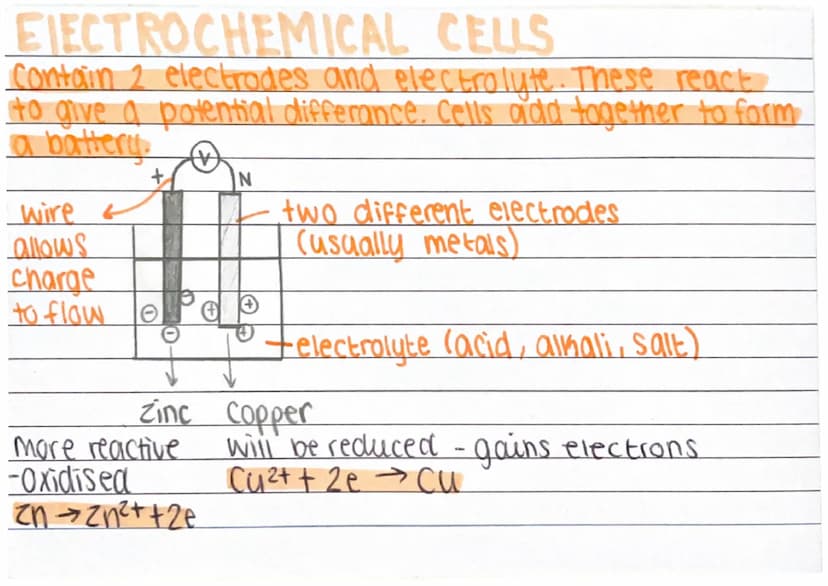 ElECTROCHEMICAL CELLS
Contain 2 electrodes and electrolyte. These react
to give a potential differance. Cells add together to form
a battery.
V
+ N
wire
allows
charge
to flow
two different electrodes
(usually metals)
- - - + + +
electrolyte (acid, alkali, salt)
zinc copper
more reactive
-oxidised
zn → zn²⁺ + 2e
will be reduced - gains electrons
Cu²⁺ + 2e → Cu